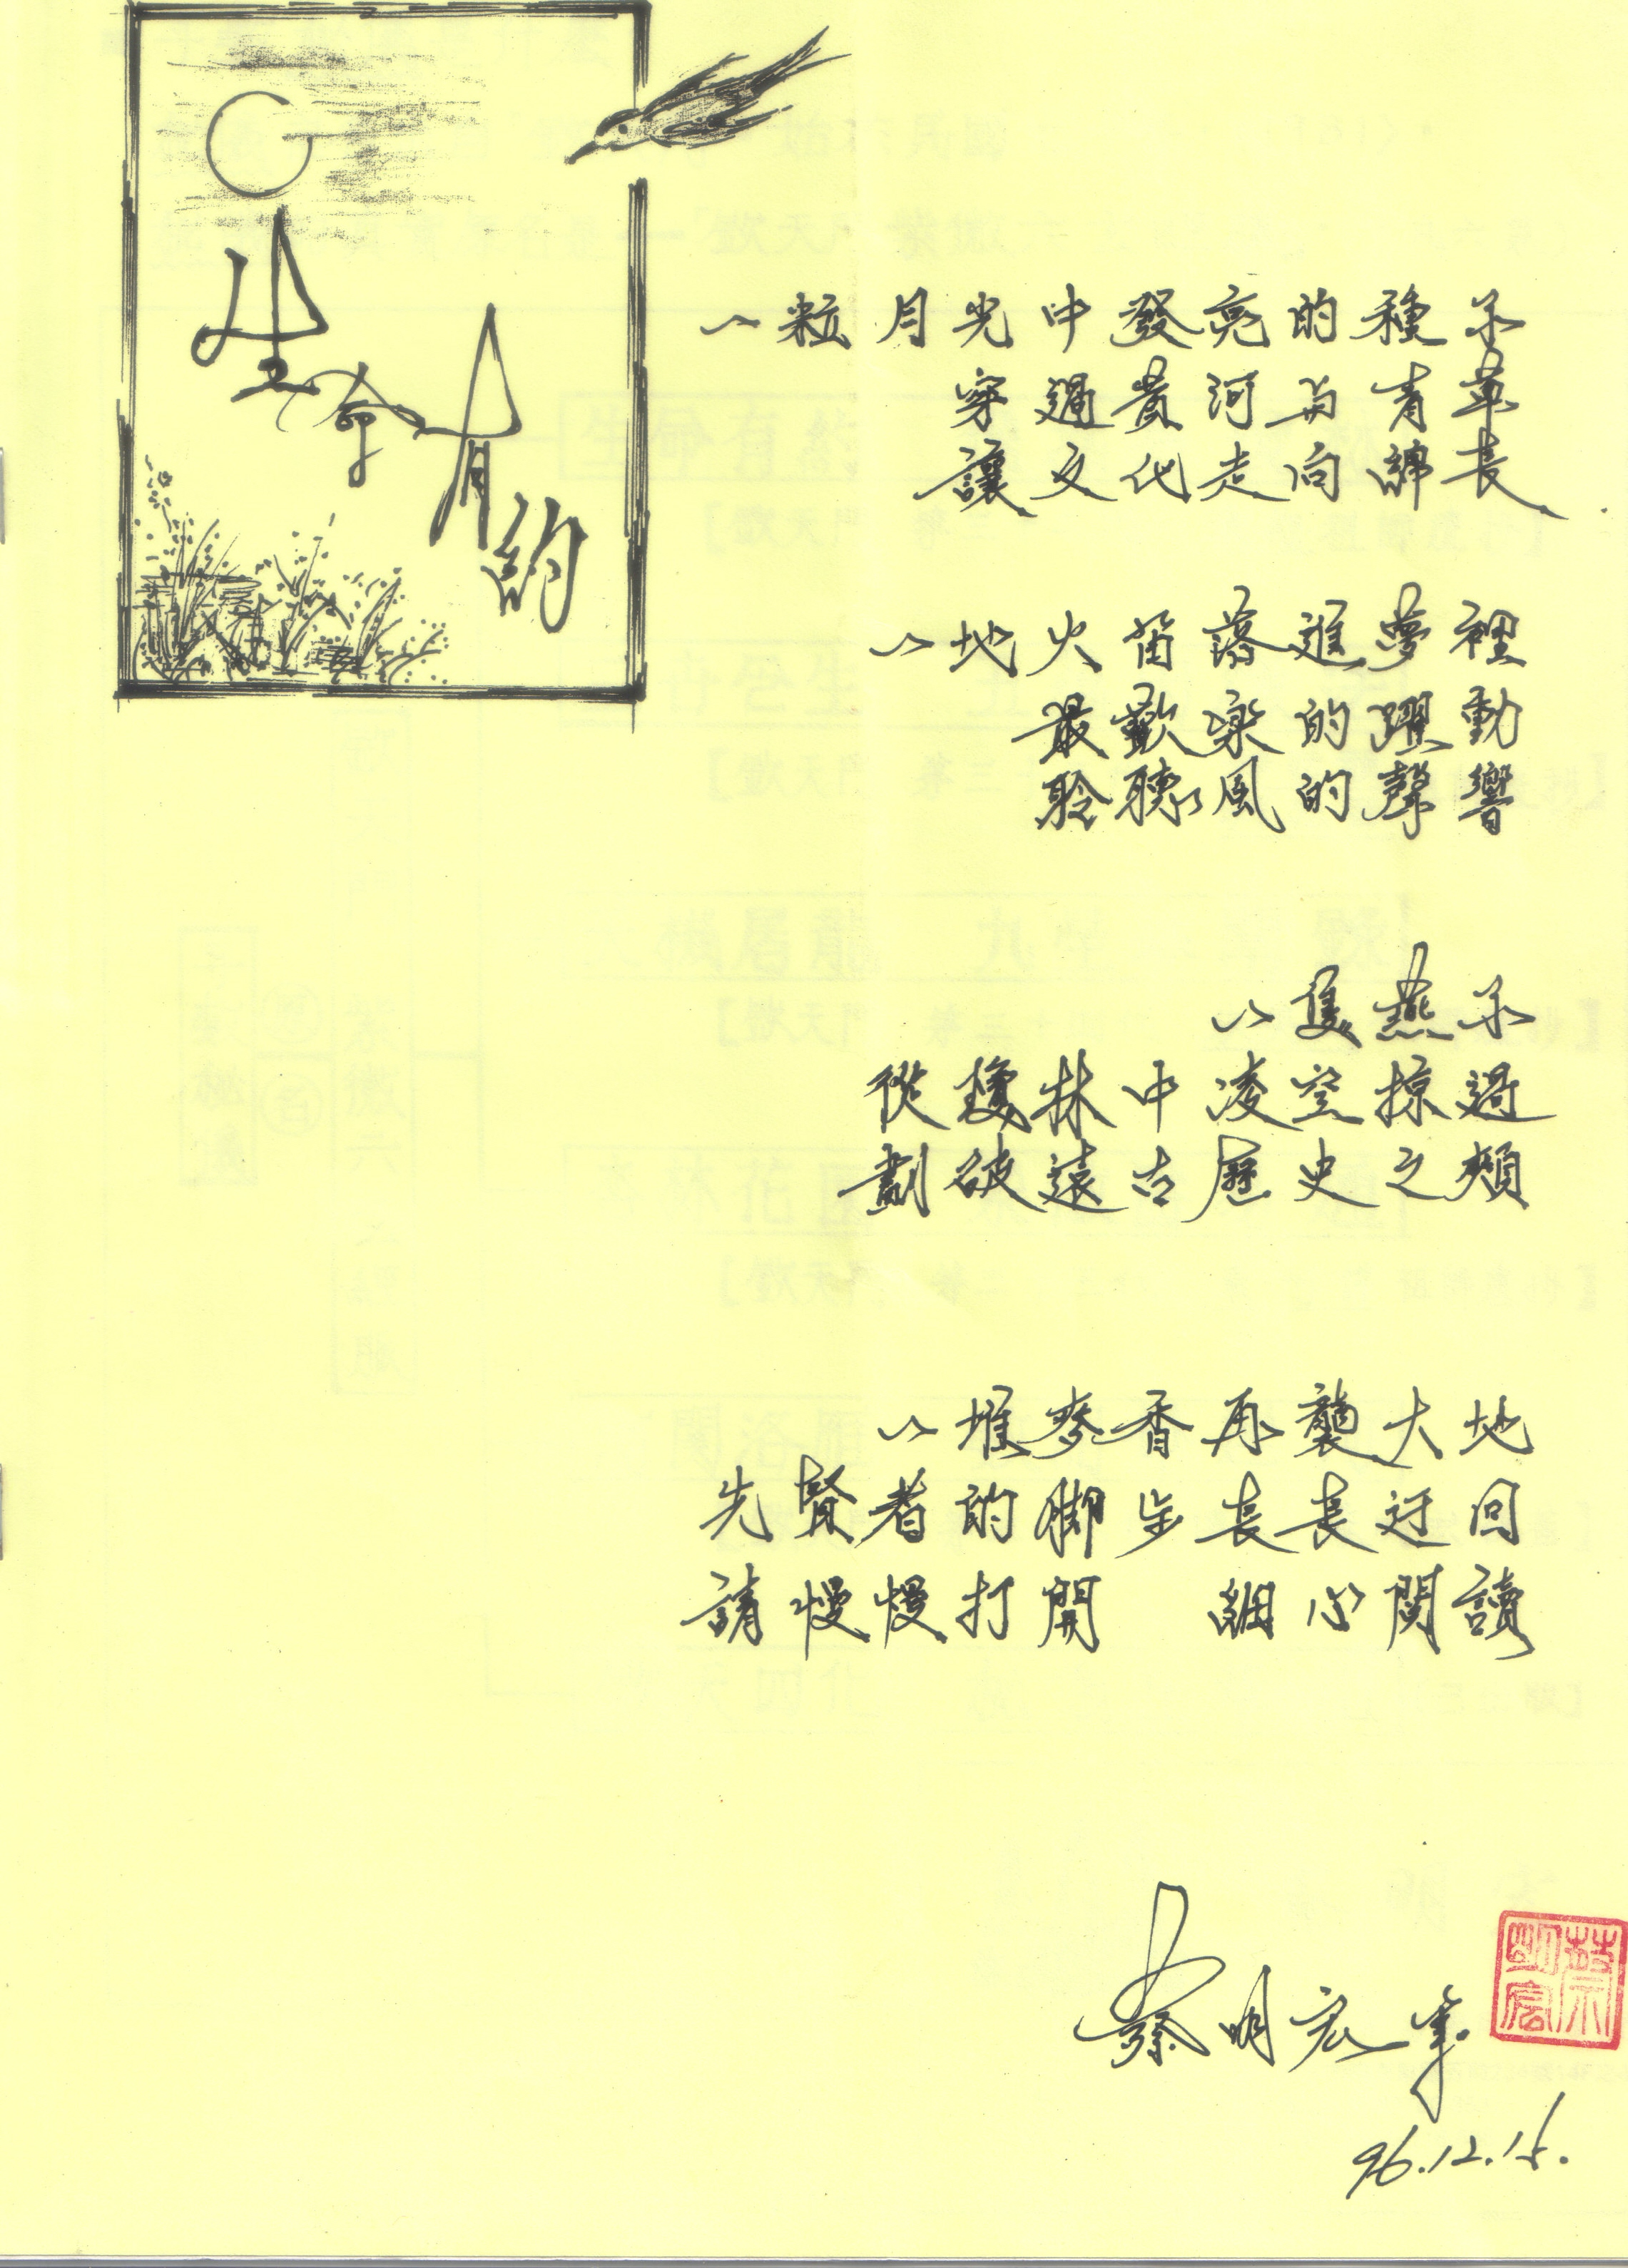 生命有約
一粒月光中發亮的種子
穿過黃河與青草
讓文化走向綿長
一地火笛落進夢裡
最歡樂的躍動
聆聽風的聲響
一隻燕子
從瓊林中凌空掠過
劃破遠古歷史之頰
一堆麥香再襲大地
先賢者的腳步長長迂回
請慢慢打開 細心閱讀
蔡明宏筆
蔡明宏
96.12.15.